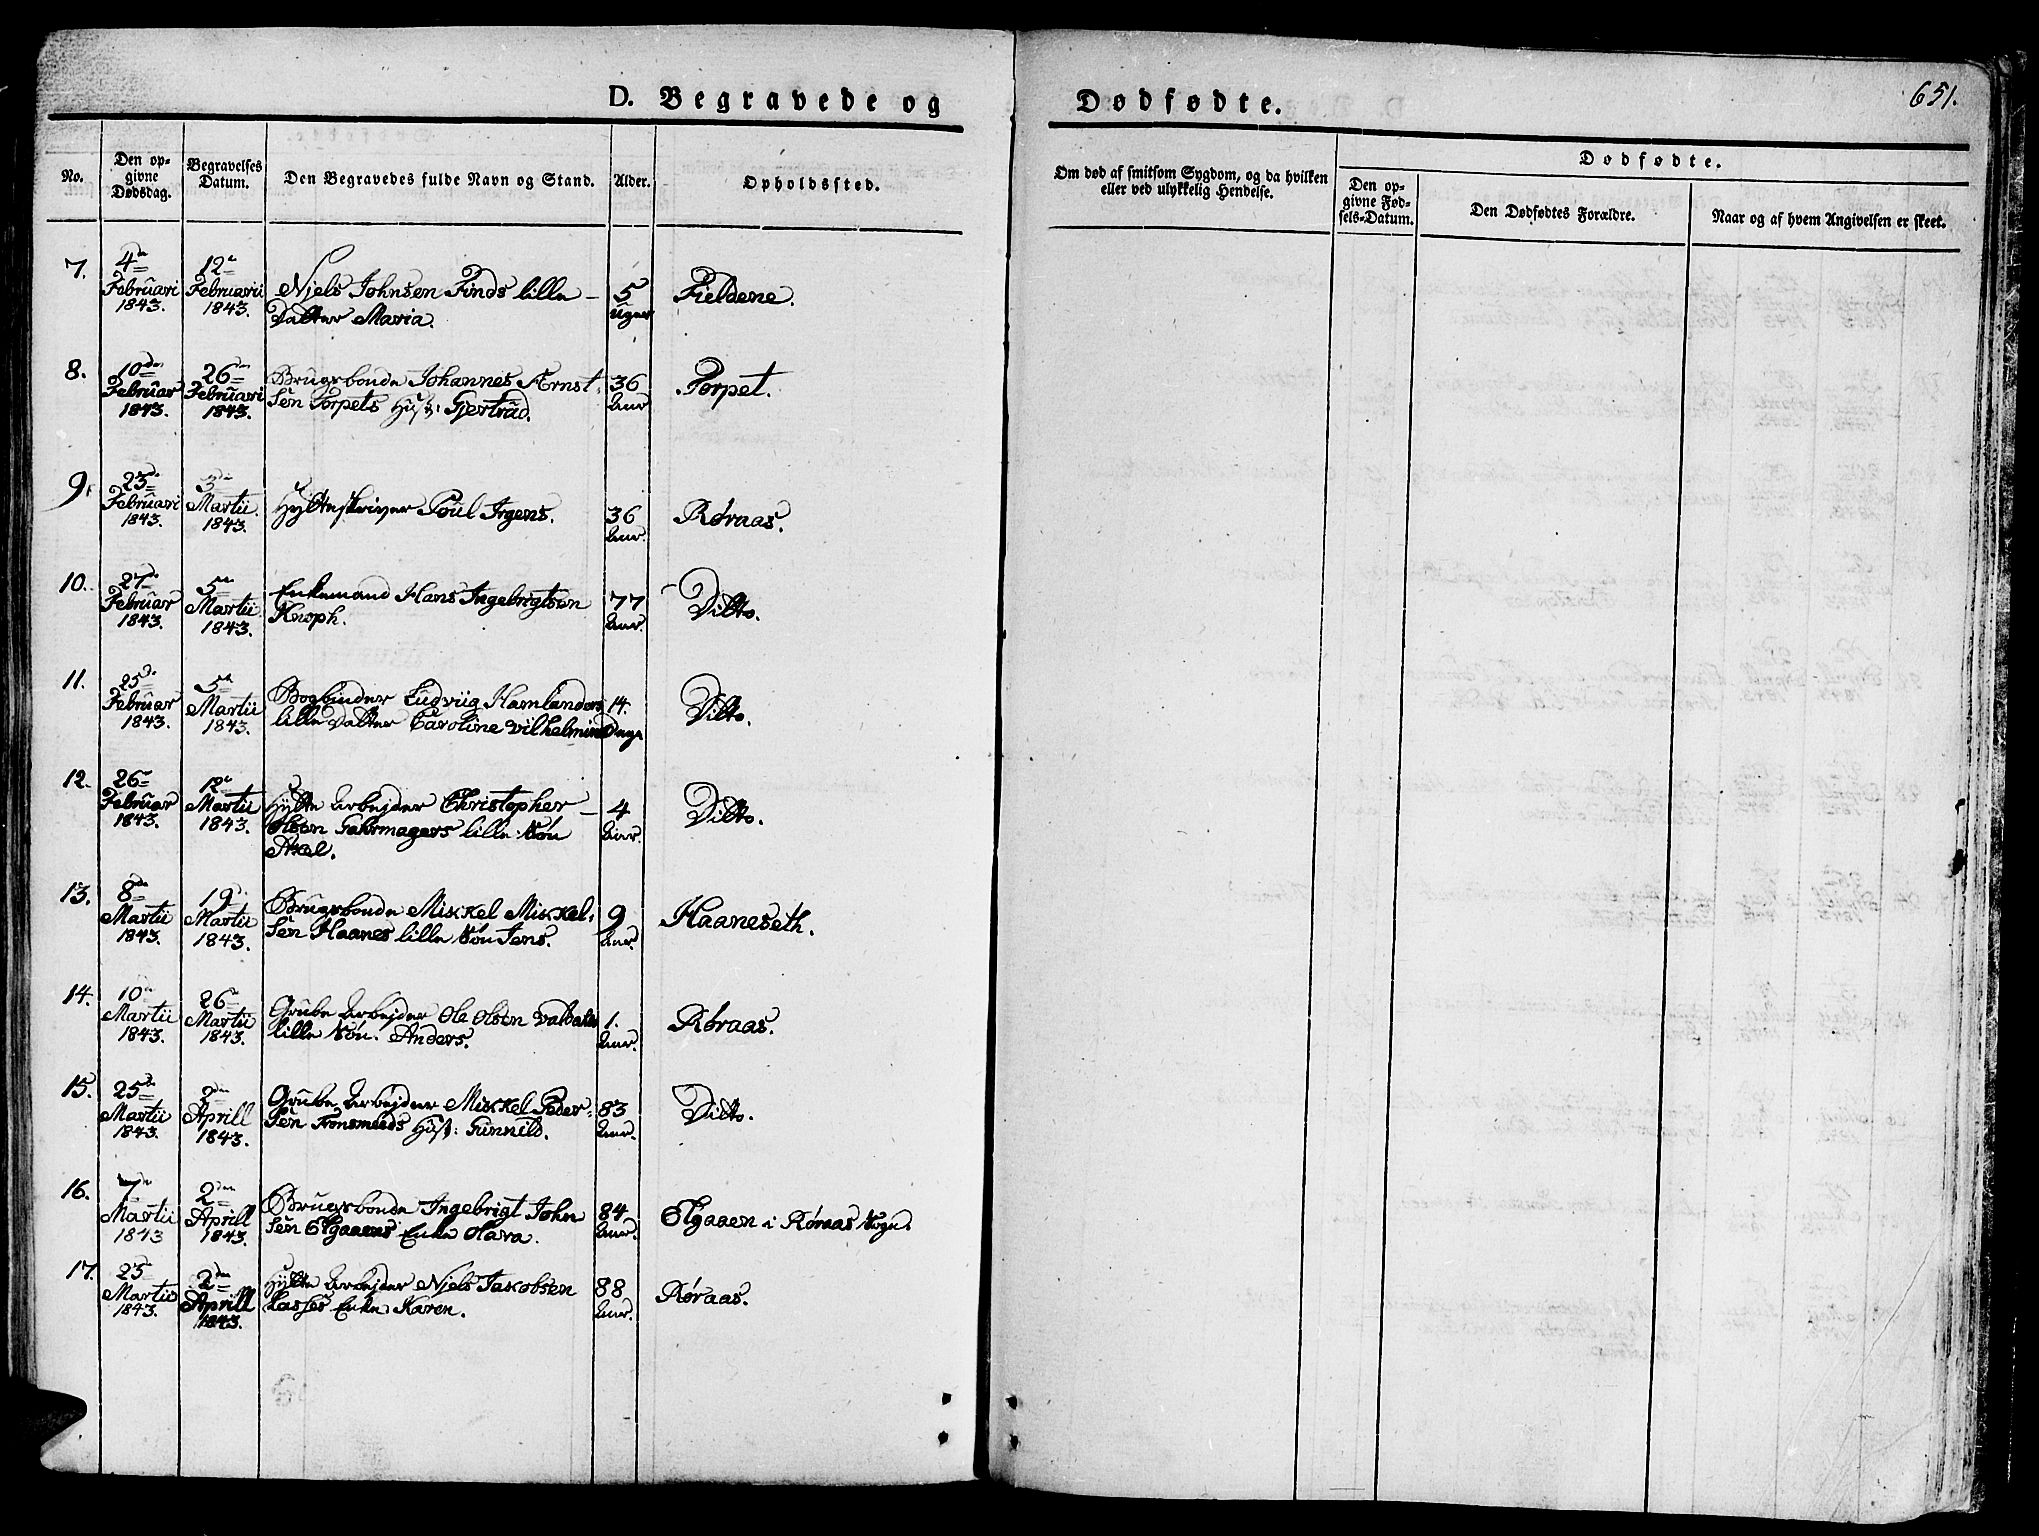 651.
D. Begravede og Dødfødte.
No.
Den op-
givne
Dødsdag.
Begravelses
Datum.
Den Begravedes fulde Navn og Stand.
Alder.
Opholdssted.
Om død af smitsom Sygdom, og da hvilken
eller ved ulykkelig Hendelse.
Dødfødte.
Den op-
givne Fød-
sels-Datum.
Den Dødfødtes Forældre.
Naar og af hvem Angivelsen er skeet.
7.
4de
Februari
1843.
12te
Februarii
1843.
Njels Johnsen Finds lille
Datter Maria.
5
Uger
Fieldene.
8.
10de
Februar
1843.
26de
Februari
1843.
Brugsbonde Johannes Arnst-
sen Torpets Hust: Gjertrud.
36
Aar
Torpet.
9.
23de
Februari
1843.
3de
Martii
1843.
Hytteskriver Poul Irgens.
36
Aar.
Røraas.
10.
27de
Februar
1843.
5te
Martii
1843.
Enkemand Hans Ingebrigtsøn
Knoph.
77
Aar.
Ditto.
11.
25de
Februar
1843.
5te
Martii
1843.
Bogbinder Ludviig Hamlanders
lille Datter Caroline Vilhelmine
14.
Dage
Ditto.
12.
26
Februar
1843.
12te
Martii
1843.
Hytte Arbejder Christopher
Olsen Gahrmagers lille Søn
Axel.
4
Aar.
Ditto.
13.
8de
Martii
1843.
19de
Martii
1843.
Brugsbonde Mikkel Mikkel-
sen Haanes lille Søn Jens.
9
Aar.
Haaneseth.
14.
10de
Martii
1843.
26de
Martii
1843.
Grube Arbejder Ole Olsen
lille Søn. Anders.
1.
Aar.
Røraas.
15.
25de
Martii
1843.
2den
Aprill
1843.
Grube Arbejder Mikkel Peder-
sen Tronsmeds Hust: Gunnild.
83
Aar.
Ditto.
16.
7de
Martii
1843
2den
Aprill
1843.
Brugsbonde Ingebrigt John
sen Elgaaens Enke Olava.
84
Aar.
Elgaaen i Røraas Sogn.
17.
25
Martii
1843.
2den
Aprill
1843.
Hytte Arbejder Njels Jakobsen
Lasses Enke Karen.
88
Aar.
Røraas.